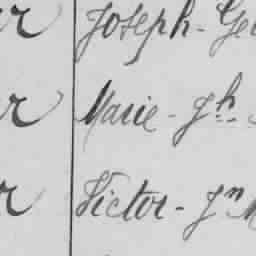 Joseph - Ge
Marie - Jh -
Victor - Jn M